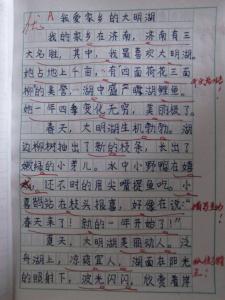 优 A 我爱家乡的大明湖
我的家乡在济南，济南有三
大名胜，其中，我最喜欢大明湖。
她占地上千亩，有四面荷花三面
柳的美誉，湖中盛产鲤鱼。
她一年四季变化无穷，美丽极了。
春天，大明湖生机勃勃。湖
边柳树抽出了新的枝条，长出了
嫩绿的小芽儿。水中小野鸭在嬉
戏，还不时的用尖嘴捉鱼。小
喜鹊站在枝头报喜，好像在说：“
春天来了！新的一年开始了！”
夏天，大明湖美丽动人。泛
舟湖上，凉爽宜人。湖面在阳光
的照射下，波光闪闪，欣赏着岸